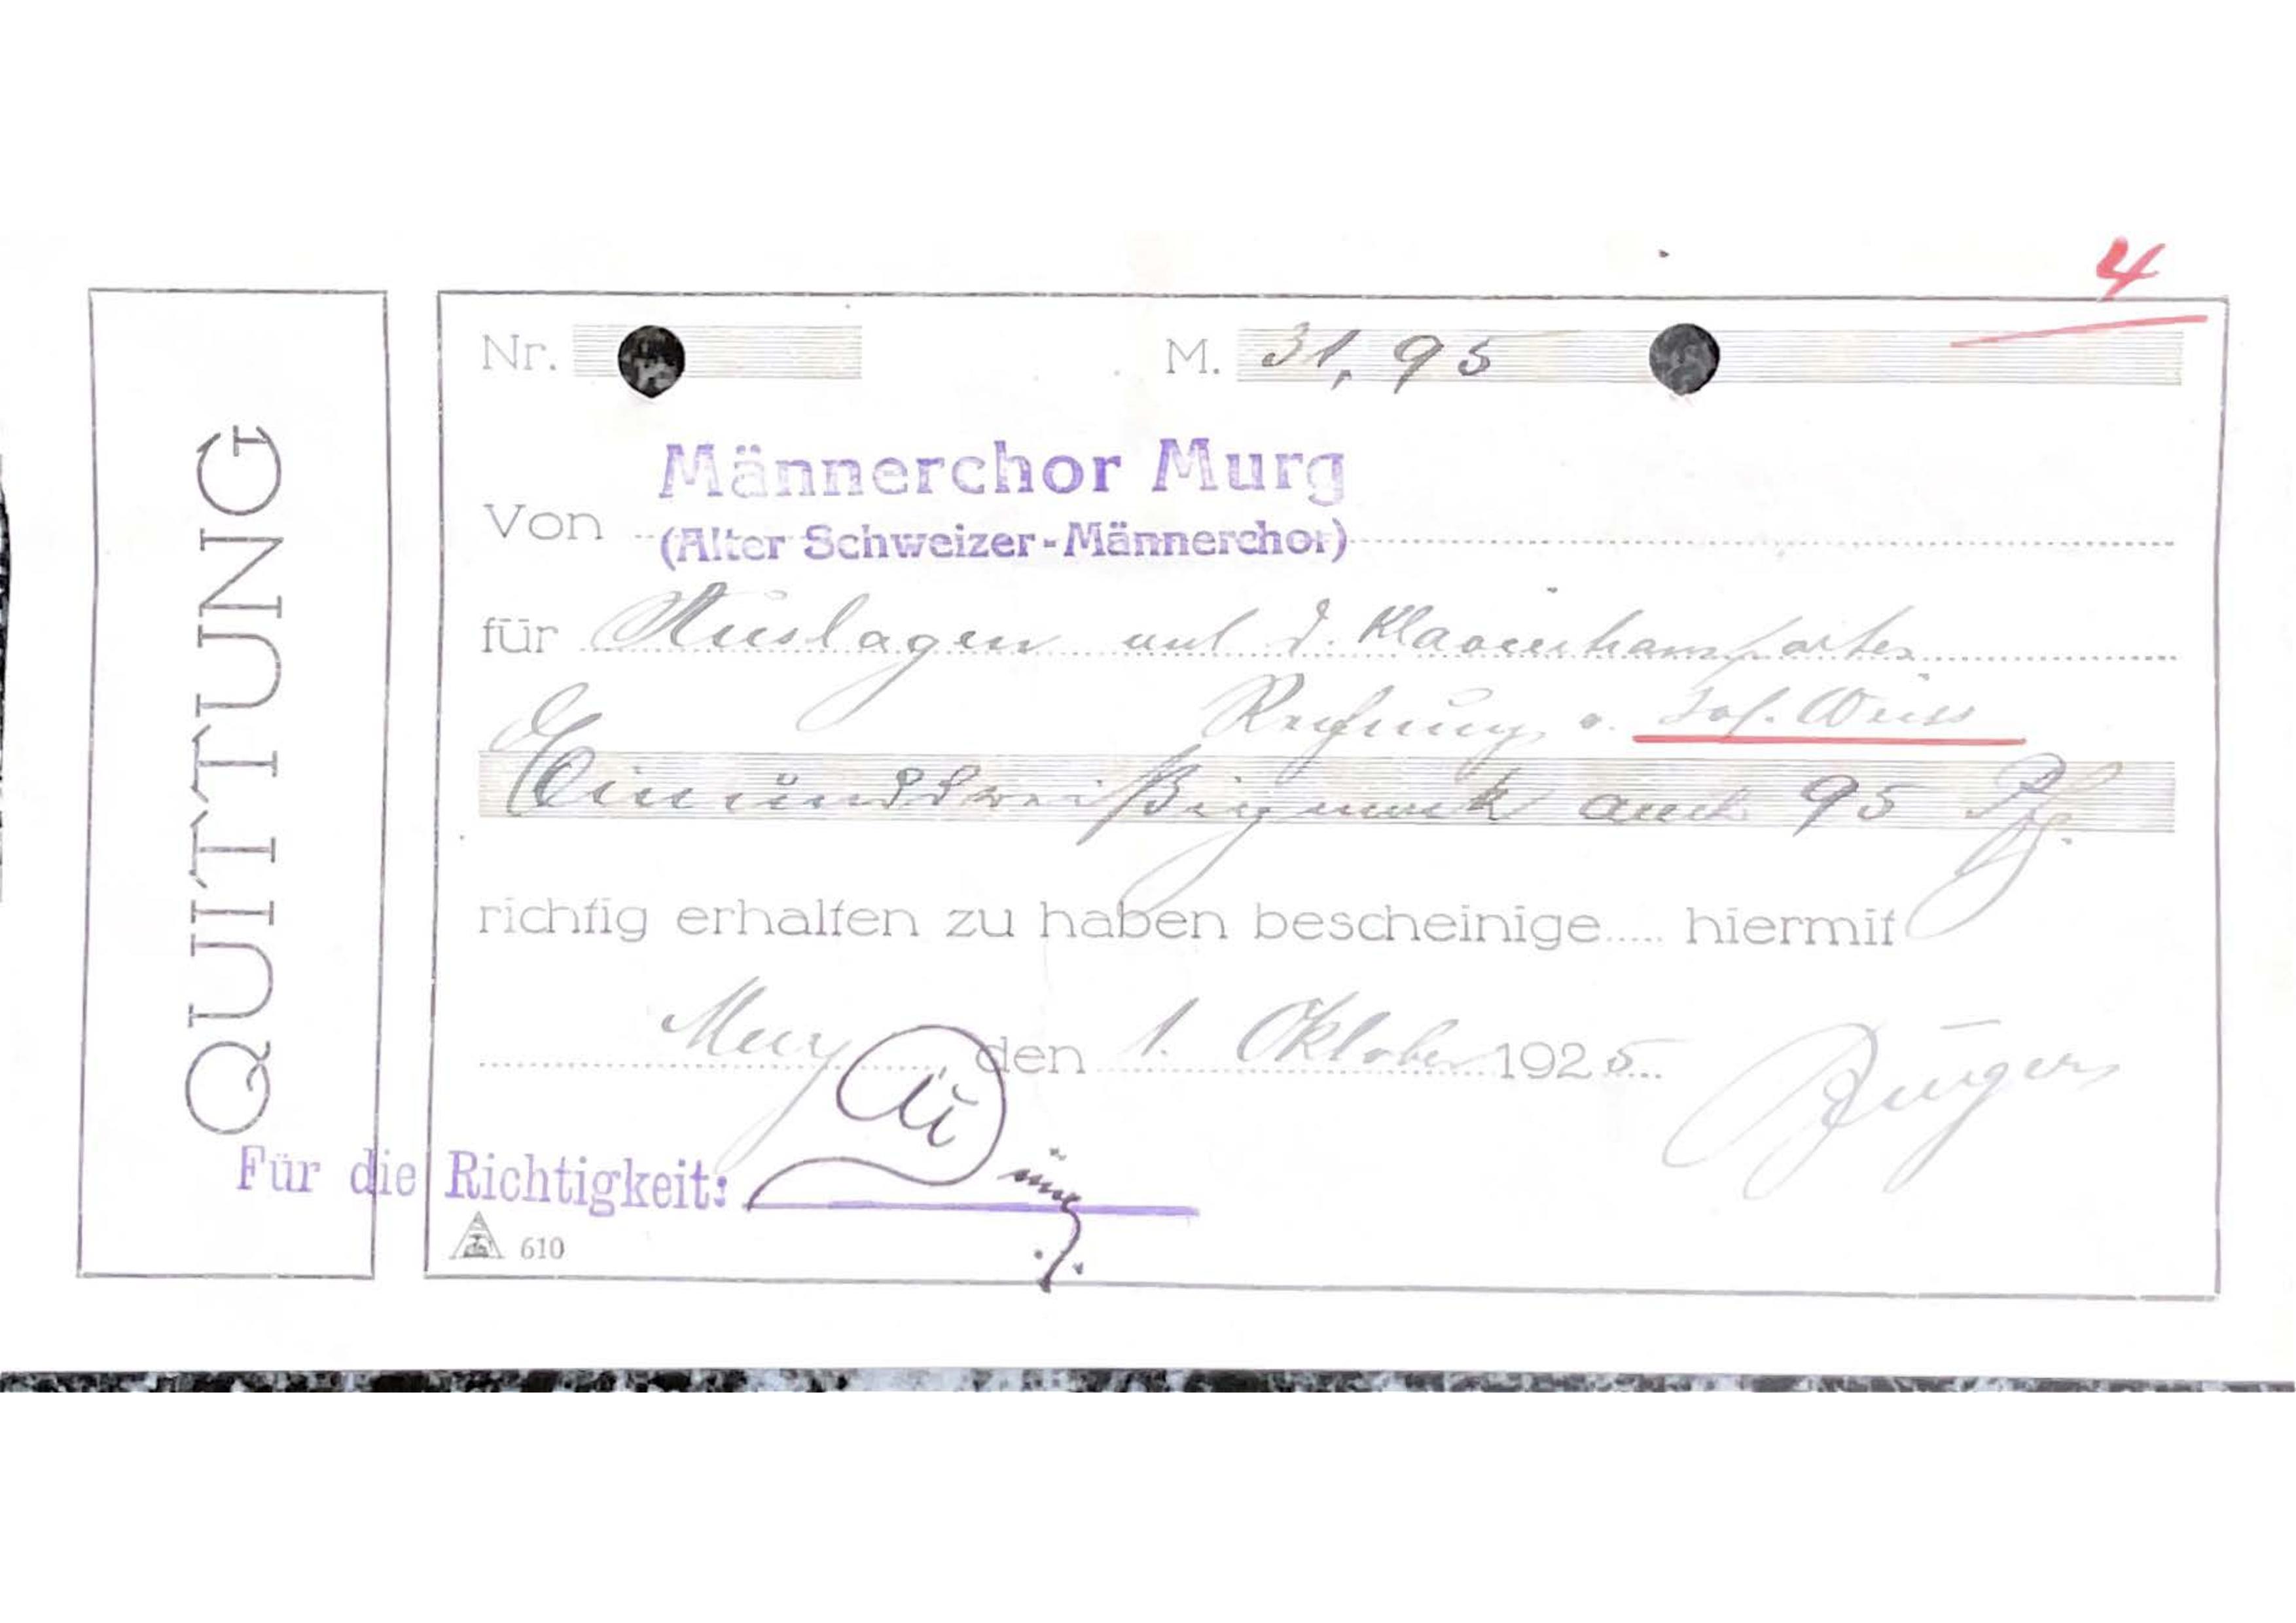 4
QUITTUNG
Nr. M. 31,95
Männerchor Murg
Von (Alter Schweizer-Männerchor)
für Auslagen und d. Klaviertransportes
Rechnung v. Jos. Weiss
Einunddreißigmark auch 95 Pfg.
richtig erhalten zu haben bescheinige..... hiermit
Murg den 1. Oktober 1925
Für die Richtigkeit:
610